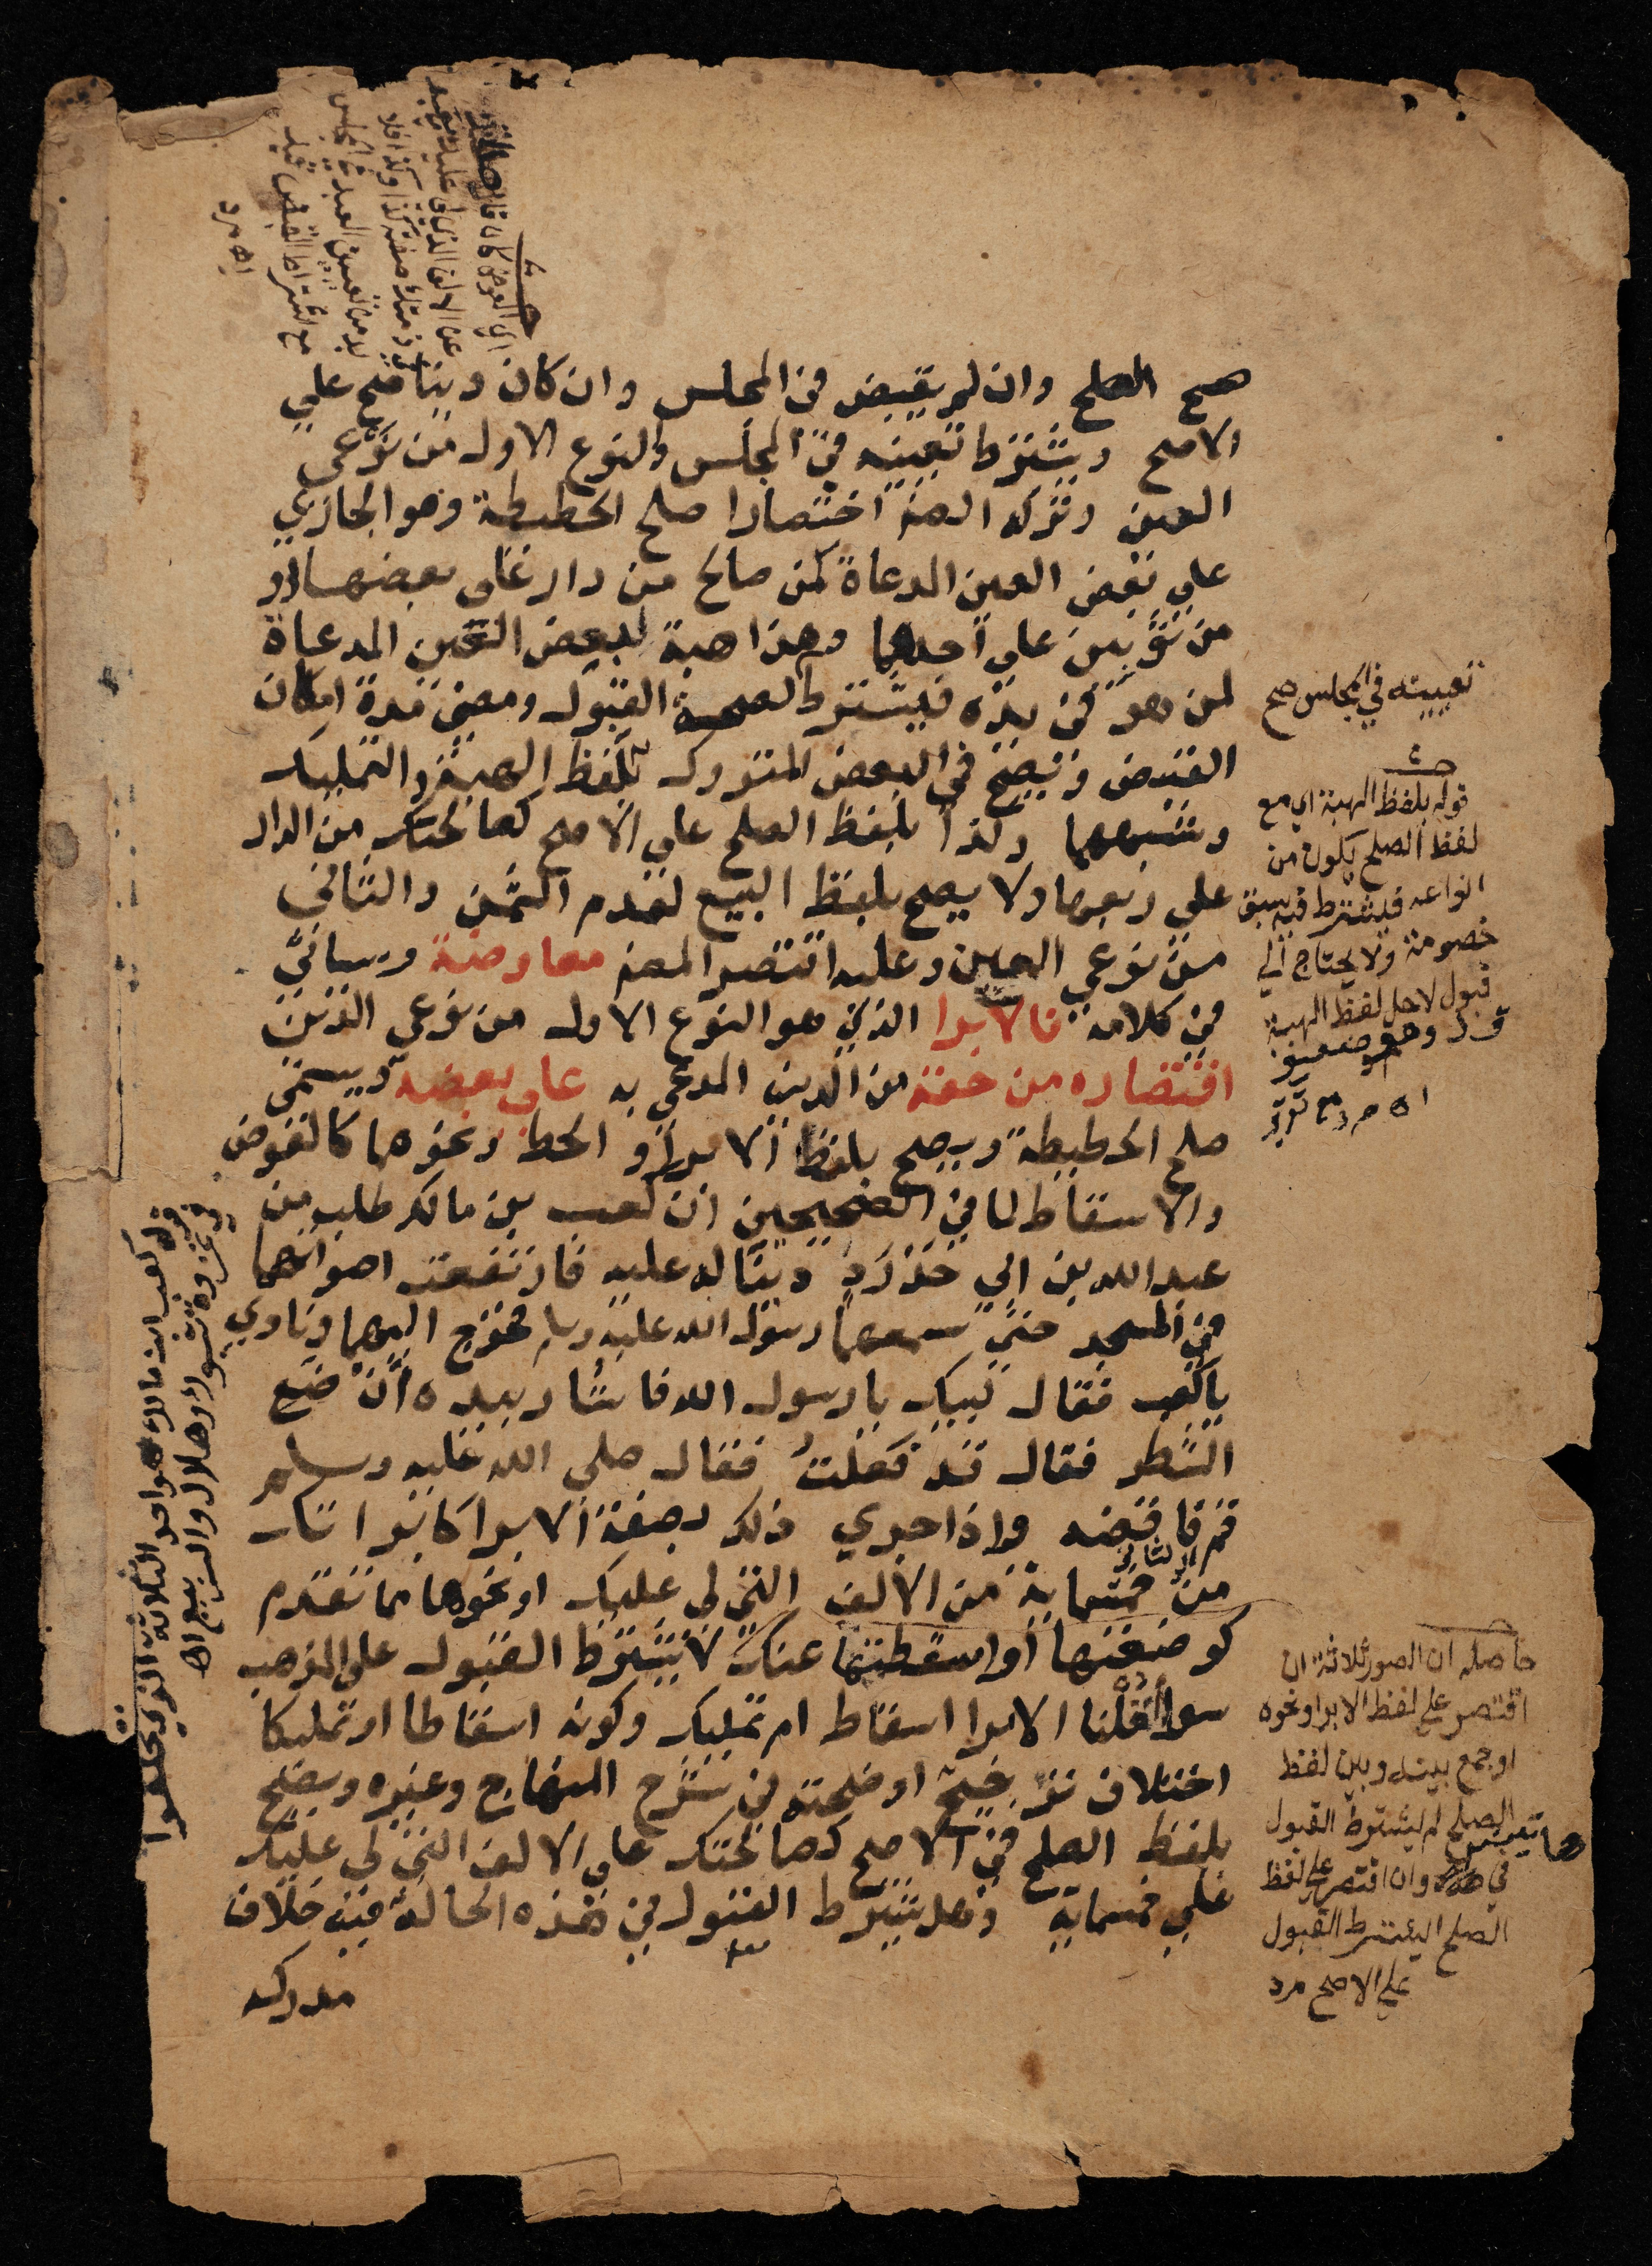 صح الصلح وان لم يقبض في المجلس وان كان دينا صح علي
الاصح ويشترط تعيينه في المجلس والنوع الاول من نوعي
العين وتركه المصنف اختصارا صلح الحطيطة وهو الجاري
علي بعض العين المدعاة كمن صالح من دار علي بعضها او
من ثوبين علي احدهما وهذا هبة لبعض العين المدعاة
لمن هو في يده فيشترط لصحة القبول ومضي مدة امكان
القبض ويصح في البعض المتروك بلفظ الهبة والتمليك
وشبههما وكذا بلفظ الصلح علي الاصح كصالحتك من الدار
علي ربعها ولا يصح بلفظ البيع لعدم الثمن والثاني
من نوعي العين وعليه اقتصر المصنف معاوضة وسياتي
في كلامه فالابرا الذي هو النوع الاول من نوعي الدين
اقتصاره من حقه من الدين المدعي به علي بعضه ويسمي
صلح الحطيطة ويصح بلفظ الابرا والحط ونحوهما كالتفويض
والاسقاط لما في الصحيحين ان كعب بن مالك طلب من
عبد الله بن ابي حدرد دينا له عليه فارتفعت اصواتهما
في المسجد حتي سمعهما رسول الله عليه وسلم فخرج اليهما ونادي
يا كعب فقال لبيك يا رسول الله فاشار بيده أن ضع
الشطر فقال قد فعلت فقال صلي الله عليه وسلم
قم فاقضه واذا جري ذلك بصيغة الابرا كابراتك
من خمسماية من الالف التي لي عليك او نحوها مما تقدم
كوضعتها او اسقطتها عنك لا يشترط القبول علي المذهب
سوا أقلنا الابرا اسقاط ام تمليك وكونه اسقاطا او تمليكا
اختلاف ترجيح اوضحته في شرح المنهاج وغيره ويصح
بلفظ الصلح في الاصح كصالحتك علي الالف التي لي عليك
علي خمسماية وهل يشترط القبول في هذه الحالة فيه خلاف
مدركه
تعيينه في المجلس صح
قوله بلفظ الهبة اي مع
لفظ الصلح يكون من
انواعه فيشترط فيه سبق
خصومة ولا يحتاج الي
قبول لاجل لفظ الهبة
وهو ضعيف
حاصله ان الصور ثلاثة ان
اقتصر علي لفظ الابرا ونحوه
او جمع بينه وبين لفظ
الصلح لم يشترط القبول
في وان اقتصر علي لفظ
الصلح اشترط القبول
علي الاصح مرد
قوله كعب ابن مالك هو احد الثلاثة الذين تخلفوا
في غزوة تبوك وهلال والربيع اه
اي العوض كان قال
عن الالف الذي لي عليك بعبد
في ذمتك صفته كذا وكذا فلا
بد من تعيين العبد في المجلس
مع اشتراط القبض فيه
اه مرد